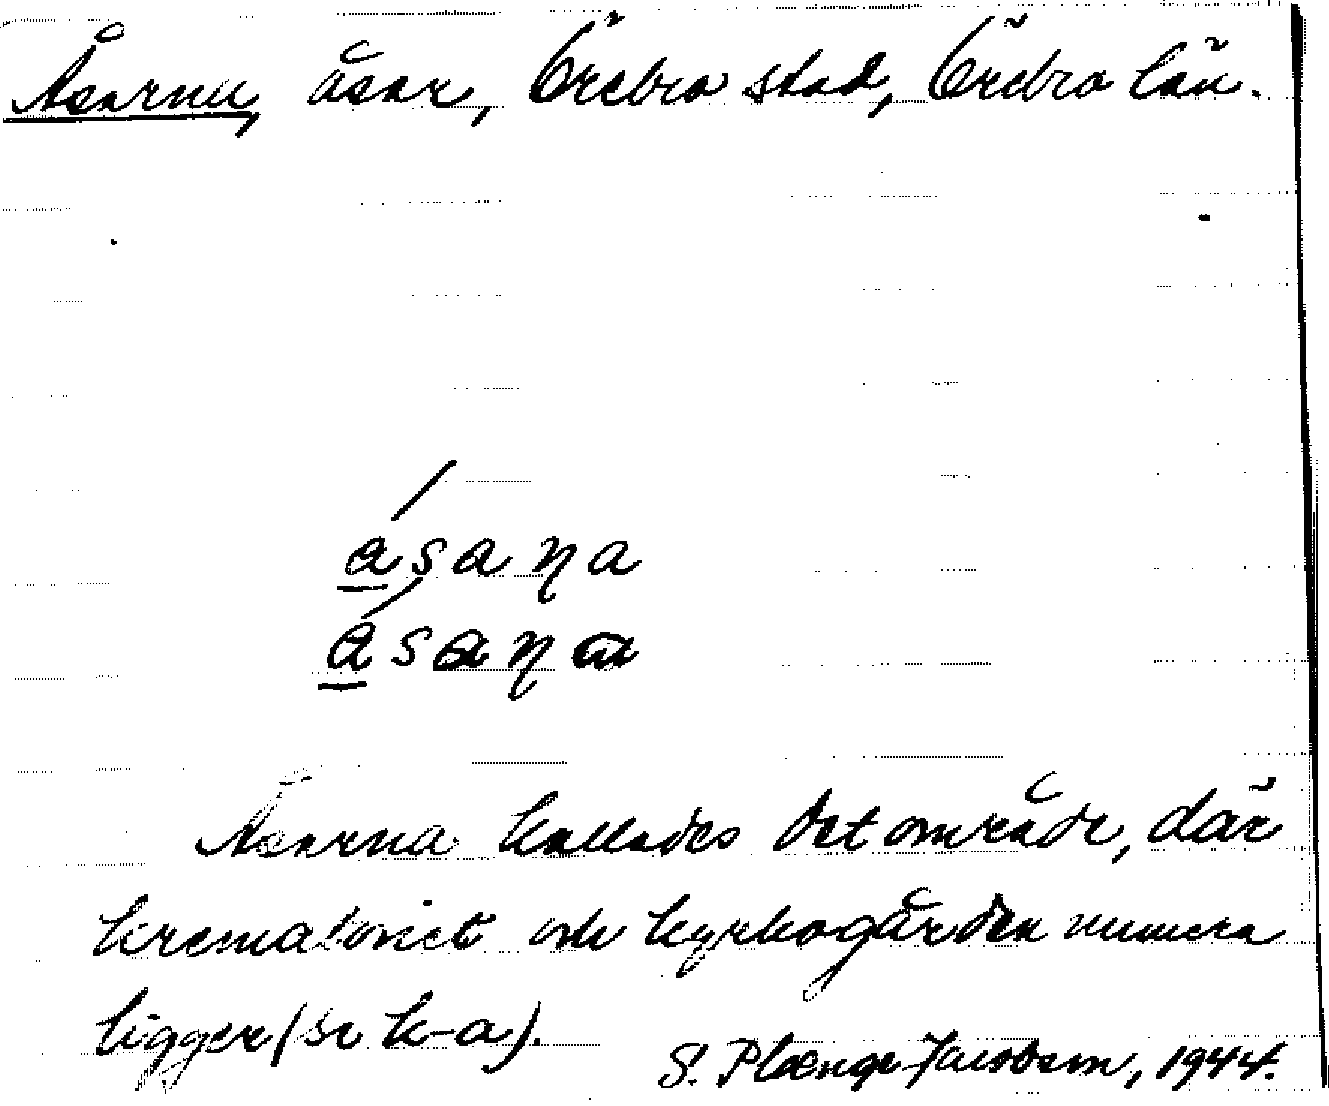 Åsarna, åsar, Örebro stad, Örebro län.
ásaɳa
ásaɳa
Åsarna kallades det område, där
krematoriet och kyrkogården numera
ligger (se k-a).
S. Plænge Jacobson, 1944.